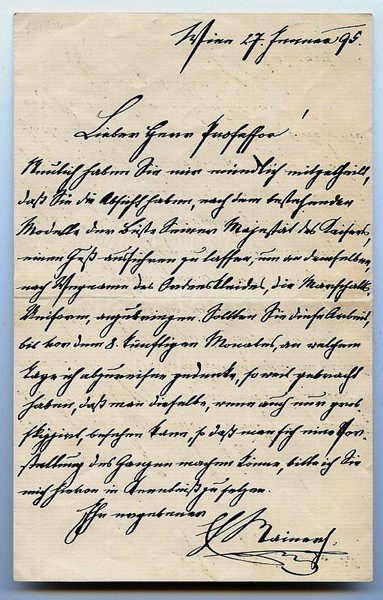 Wien 27. Jänner 95.
Lieber Herr Professor!
Neulich haben Sie mir mündlich mitgetheilt,
daß Sie die Absicht haben, nach dem bestehenden
Modelle der Büste Seiner Majestät des Kaisers,
einen Guß ausführen zu lassen, um an demselben,
nach Wegname des Ordenskleides, die Marschalls
Uniform, anzubringen. Sollten Sie diese Arbeit,
bis vor dem 8. künftigen Monates, an welchem
Tage ich abzureisen gedenke, so weit gebracht
haben, daß man dieselbe, wenn auch nur
skizzirt, besehen kann, so daß man sich eine Vor-
stellung des Ganzen machen könne, bitte ich Sie
mich hievon in Kenntniß zu setzen.
Ihr ergebener
Rainer